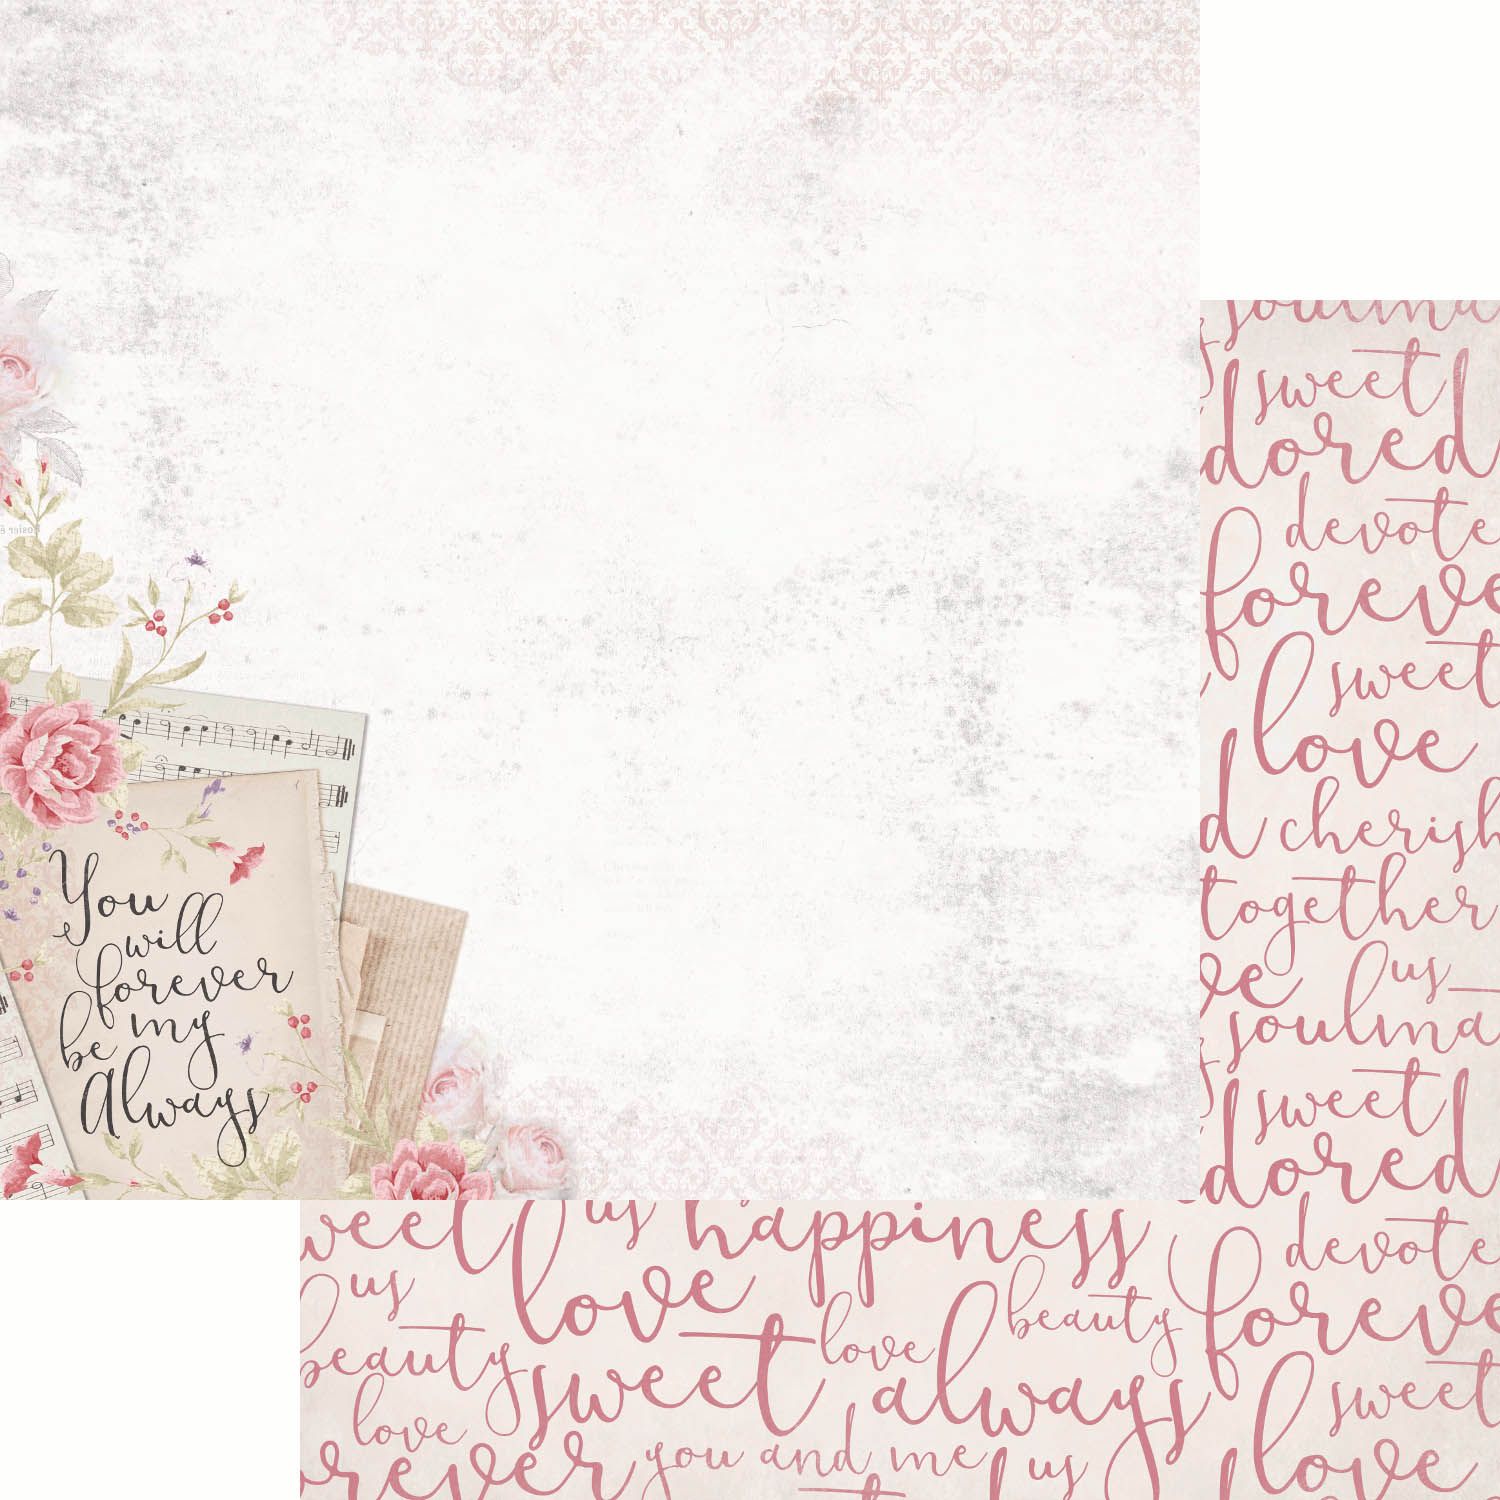 You
will
forever
be my
Always
sweet
devote
forever
sweet
love
cherish
together
us
sweet
devote
forever
sweet
love
us happiness
us love beauty
beauty sweet love always
love
you and me us